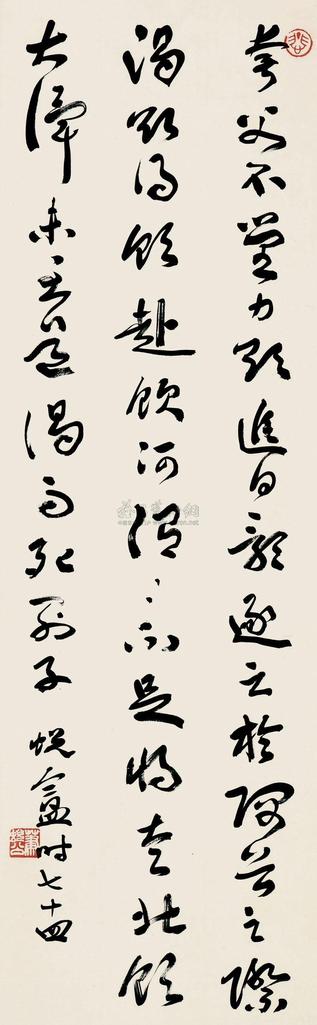 夸父不量力欲追日影逐之於隅谷之際
渴欲得飲赴飲河渭〻不足將走北飲
大澤未至道渴而死列子 蜕盦時七十四